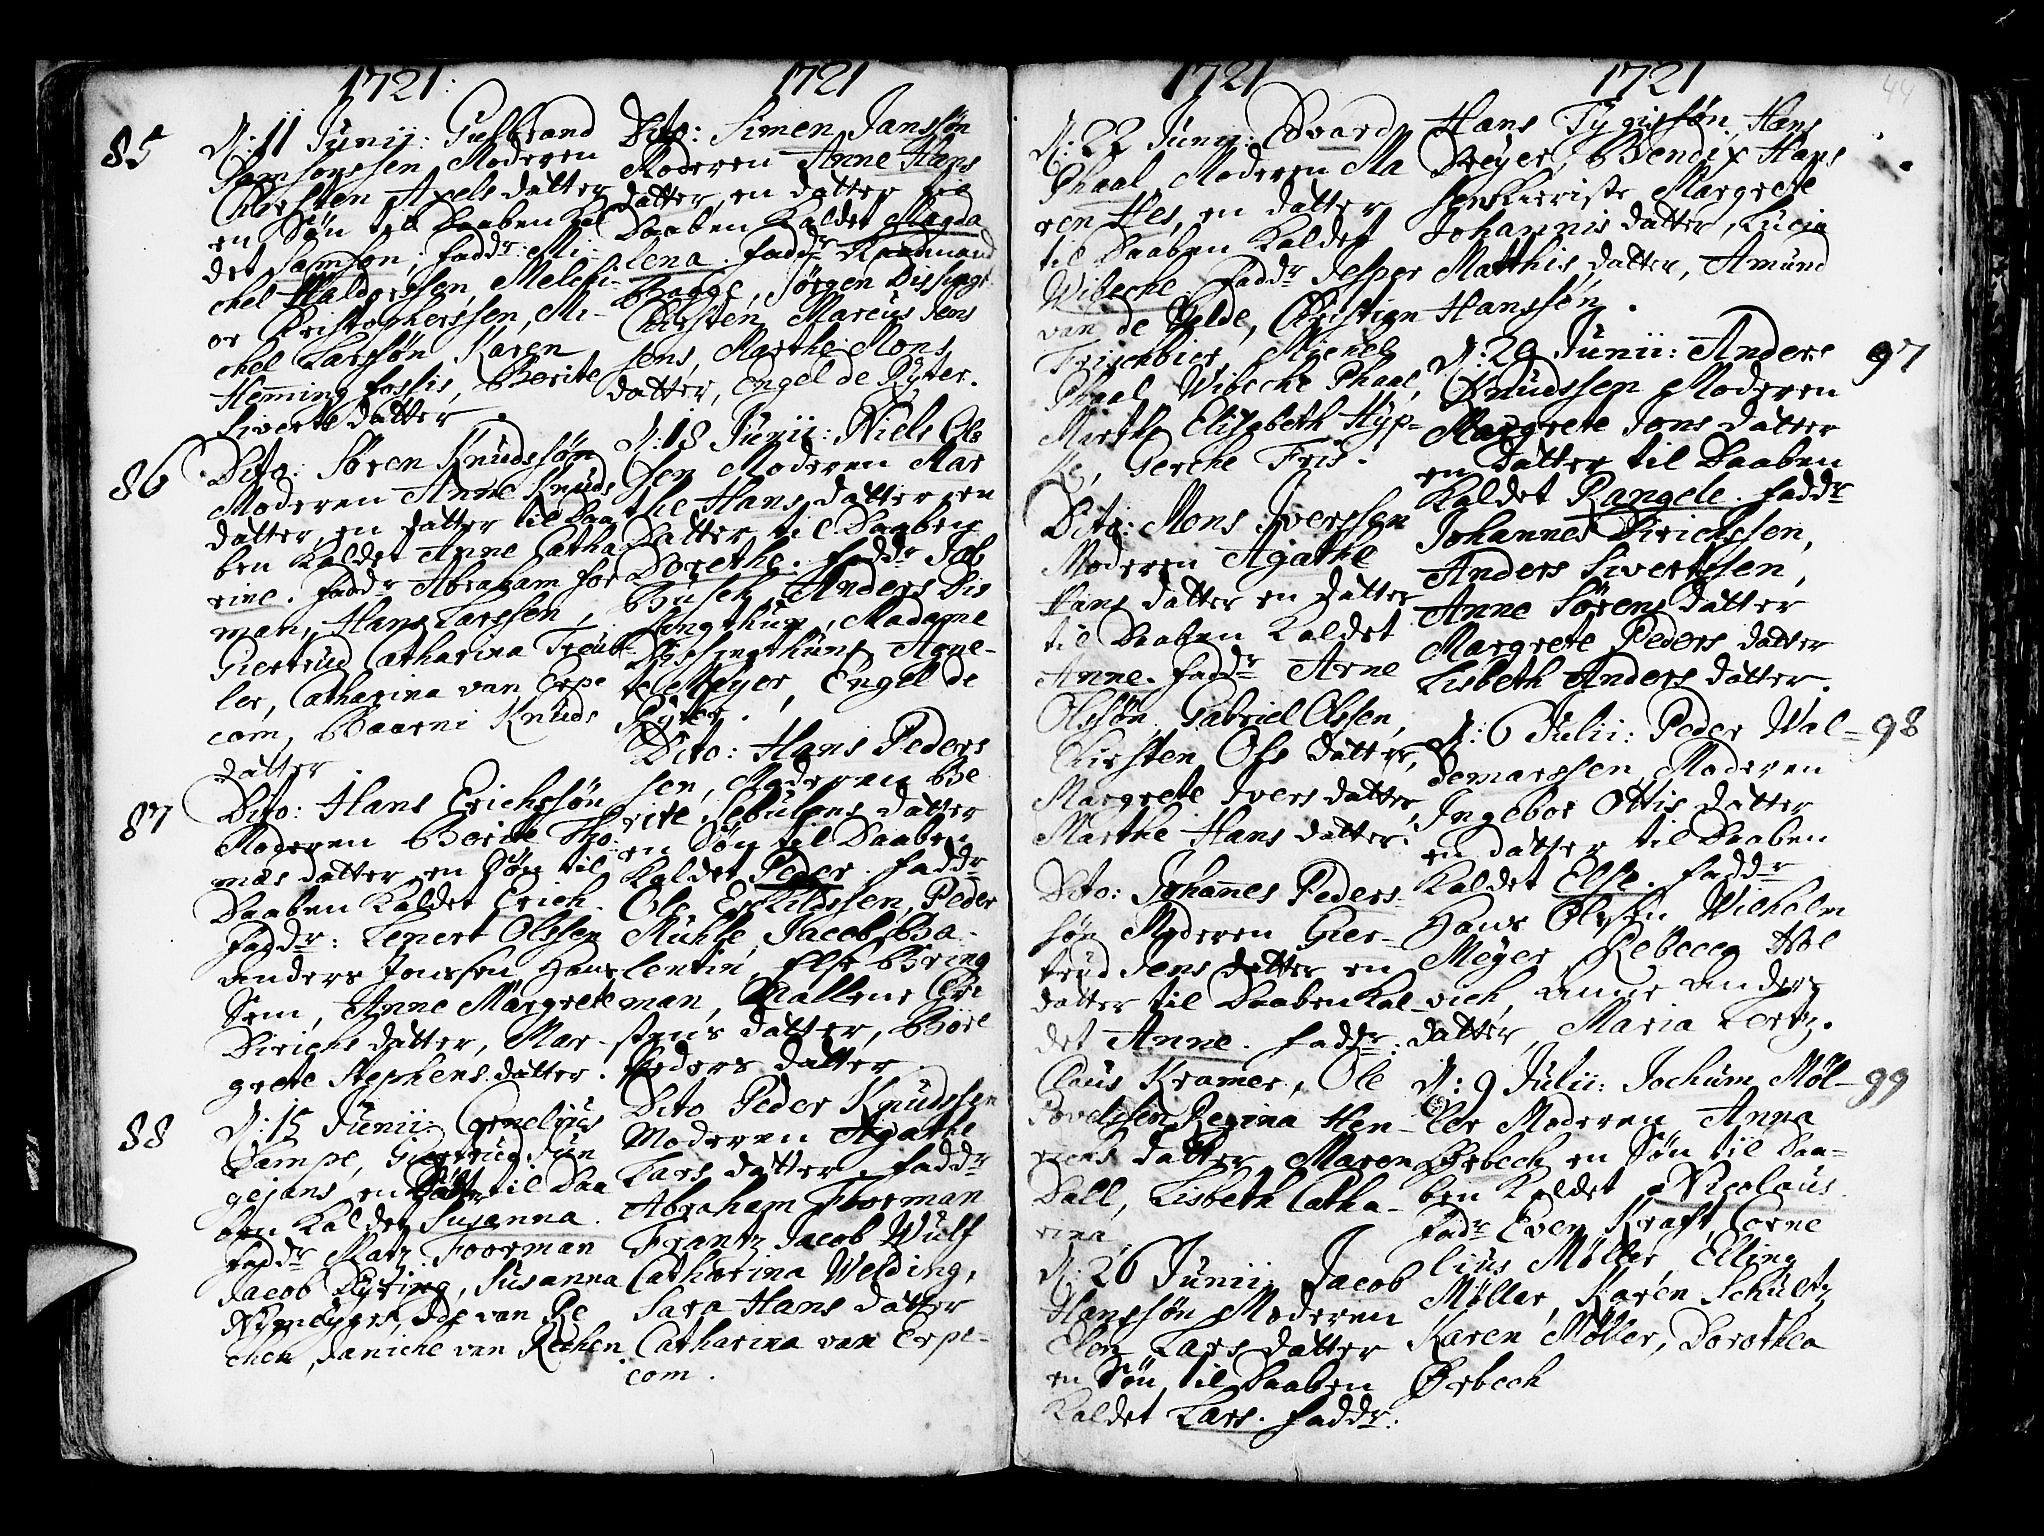 1721:
85
D: 11 Junii: Gulbrand
Samsonssen, Moderen
Chirsten Axels datter
en Søn til Daaben Kal
det Samson, fadd:r Mi-
chel Halderssen, Melchi-
or Christopherssen, Mi-
chel Larssøn Karen
Hemming fossis, Berite
Siverts datter
86
Dito: Søren Knudssøn
Moderen Anne Knuds
datter, en datter til Daa
ben Kaldet Anne Catha
rine. fadd:r Abraham for
man, Hans Larssen,
Giertrud Catharina Treut
ler, Catharina van Erpe
com, Baarni Knuds
datter
87
Dito: Hans Erichssøn
Moderen Berite Tho-
mas datter, en Søn til
Daaben Kaldet Erich.
fadd:r: Lenert Olssen
Anders Jonssen, Hans
Sem, Anne Margrete
Dirichs datter, Mar-
grete Stephens datter.
88
D: 15 Junii: Cornelius
Dampe, Giertrud Jun
gejans, en Datter til Daa
ben Kaldet Susanna.
fadd:r Matz Foorman
Jacob Dyring, Susanna
Nymeyers, Ide van Re
chen, Janiche van Rechen
1721
Dito: Simen Janssøn
Moderen Anne Hans
datter, en datter til
Daaben Kaldet Magda
lena. fadd:r Raadmand
Bagge, Jørgen Dissingt
Chirsten, Marcus Jens
sons, Marthe Mons
datter, Engel de Ryter.
D: 18 Junii: Niels Ols
sen Moderen Mar
the Hans datter, en
Datter til Daaben
Dorethe. fadd:r Job
Busch, Anders Dis
singthun, Madame
Dissingthuns, Agne-
te Meyer, Engel de
Ryter.
Dito: Hans Peders
sen, Moderen Be
rite Sebulons datter
en Søn til Daaben
Kaldet Peder. fadd:r
Ole Eschildssen, Peder
Muhle, Jacob Ba-
lentin, Else Bring
man, Mallene Chri
stens datter, Børe
Peders datter
Dito Peder Knudssen
Moderen Agathe
Lars datter. fadd:r
Abraham Foorman
Frantz Jacob Wulf
Catharina Welding,
Sara Hans datter
Catharina van Erpe-
com.
1721
D: 22 Junii: Evard
Phaal, Moderen Ma
ren Hes, en datter
til Daaben Kaldet
Wibeche. fadd:r Jesper
van de Velde, Christian
Frischbier, Michel
Phaal, Wibeche Phaal,
Marthe Elisabeth Hyp-
ke, Gerche Fris.
Dito: Mons Iverssen
Moderen Agathe
Hans datter en datter
til Daaben Kaldet
Anne. fadd:r Arne
Olssøn, Gabriel Olssen,
Chirsten Ols datter,
Margrete Ivers datter,
Marthe Hans datter.
Dito: Johannes Peders-
søn Moderen Gier-
trud Jens datter en
datter til Daaben Kal-
det Anne. fadd:r:
Claus Kramer, Ole
Povelssen Regina Hen-
richs datter Maren
Dall, Lisbeth Catha-
rina
D: 26 Junii Jacob
Hanssøn Moderen
Elen Lars datter
en Søn til Daaben
Kaldet Lars. fadd:r:
1721
44
Hans Tygissøn, Hans
Dreyer, Bendix Hans
sen Margrete
Johannis datter, Lucia
Matthis datter, Amund
Hanssøn.
D: 29 Junii: Anders
97
Knudssen Moderen
Margrete Jons datter
en datter til Daaben
Kaldet Rangele. fadd:r
Johannes Dirichssen,
Anders Sivertssen,
Anne Sørens datter
Margrete Peders datter
Lisbeth Anders datter.
D: 6 Julii: Peder Wal-
98
demarssen, Moderen
Ingebor Ottis datter
en datter til Daaben
Kaldet Else. fadd:r
Hans Olssen Wilhelm
Meyer, Rebecca Hol
vich, Anne Anders
datter, Maria Lertz.
D: 9 Julii: Jochum Møl-
99
ler Moderen Anna
Ørbech en Søn til Daa-
ben Kaldet Nicolaus.
fadd:r Even Kraft, Corne
lius Møller, Elling
Møller, Karen Schultz
Karen Møller, Dorothea
Ørbech